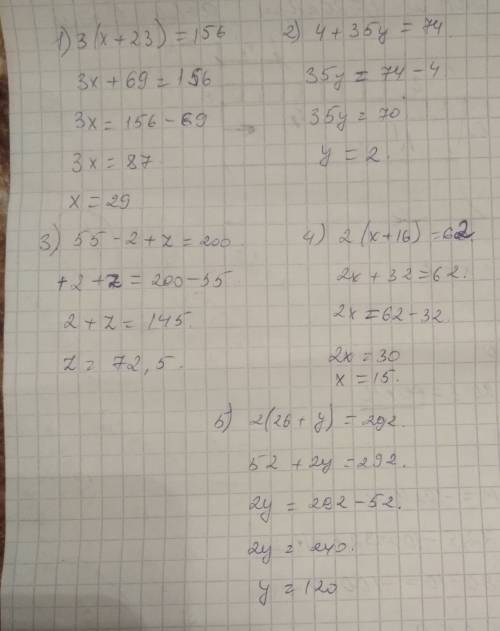 1) 3(x+23)=156
3x+69=156
3x=156-69
3x=87
x=29
2) 4+35y=74
35y=74-4
35y=70
y=2.
3) 55-2+z=200
+2+z=200-55
2+z=145.
z=72,5.
4) 2(x+16)=62
2x+32=62.
2x=62-32.
2x=30
x=15.
5) 2(26+y)=292.
52+2y=292.
2y=292-52.
2y=240.
y=120